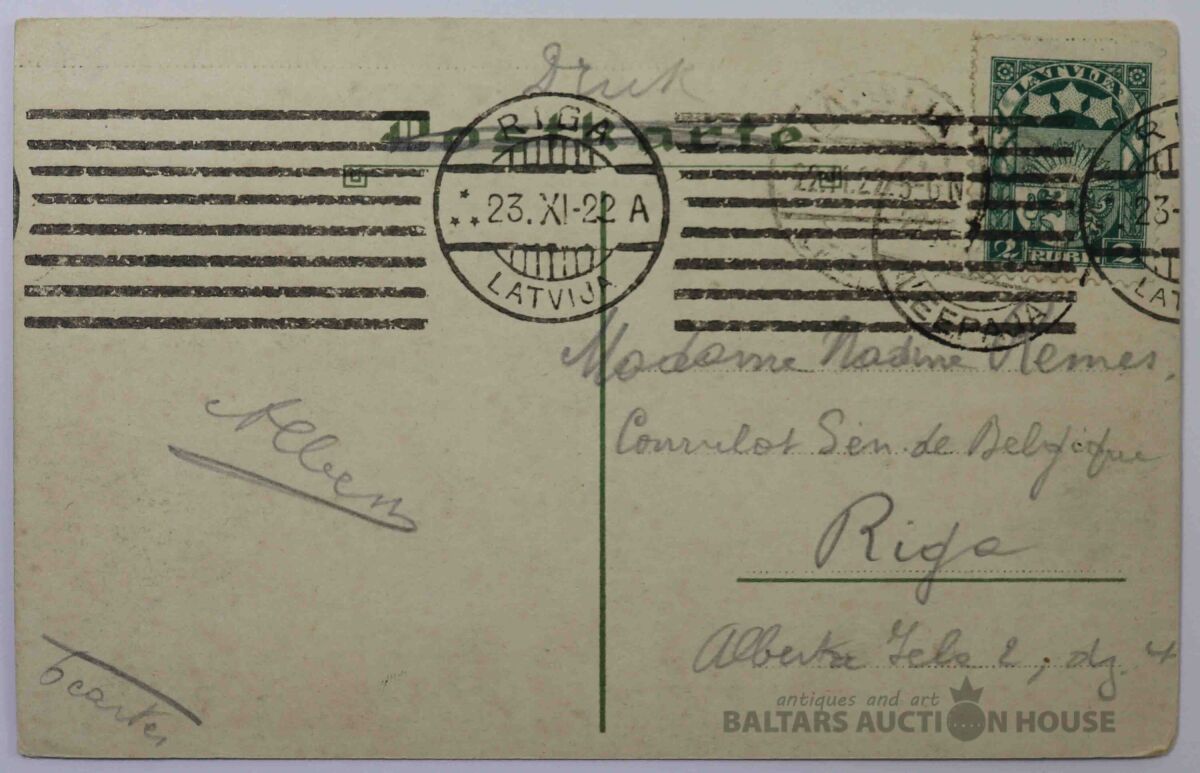 Druk
Postkarte
RIGA
23. XI-22 A
LATVIJA
LATVIJA
2 RUBĻI 2
LEEPAJA
RIGA
23-
LAT
Madame Nadine Nemes,
Consulat Gén. de Belgique
Riga
Alberta Iela 2, dz. 4
Albert
6 cartes
antiques and art
BALTARS AUCTION HOUSE